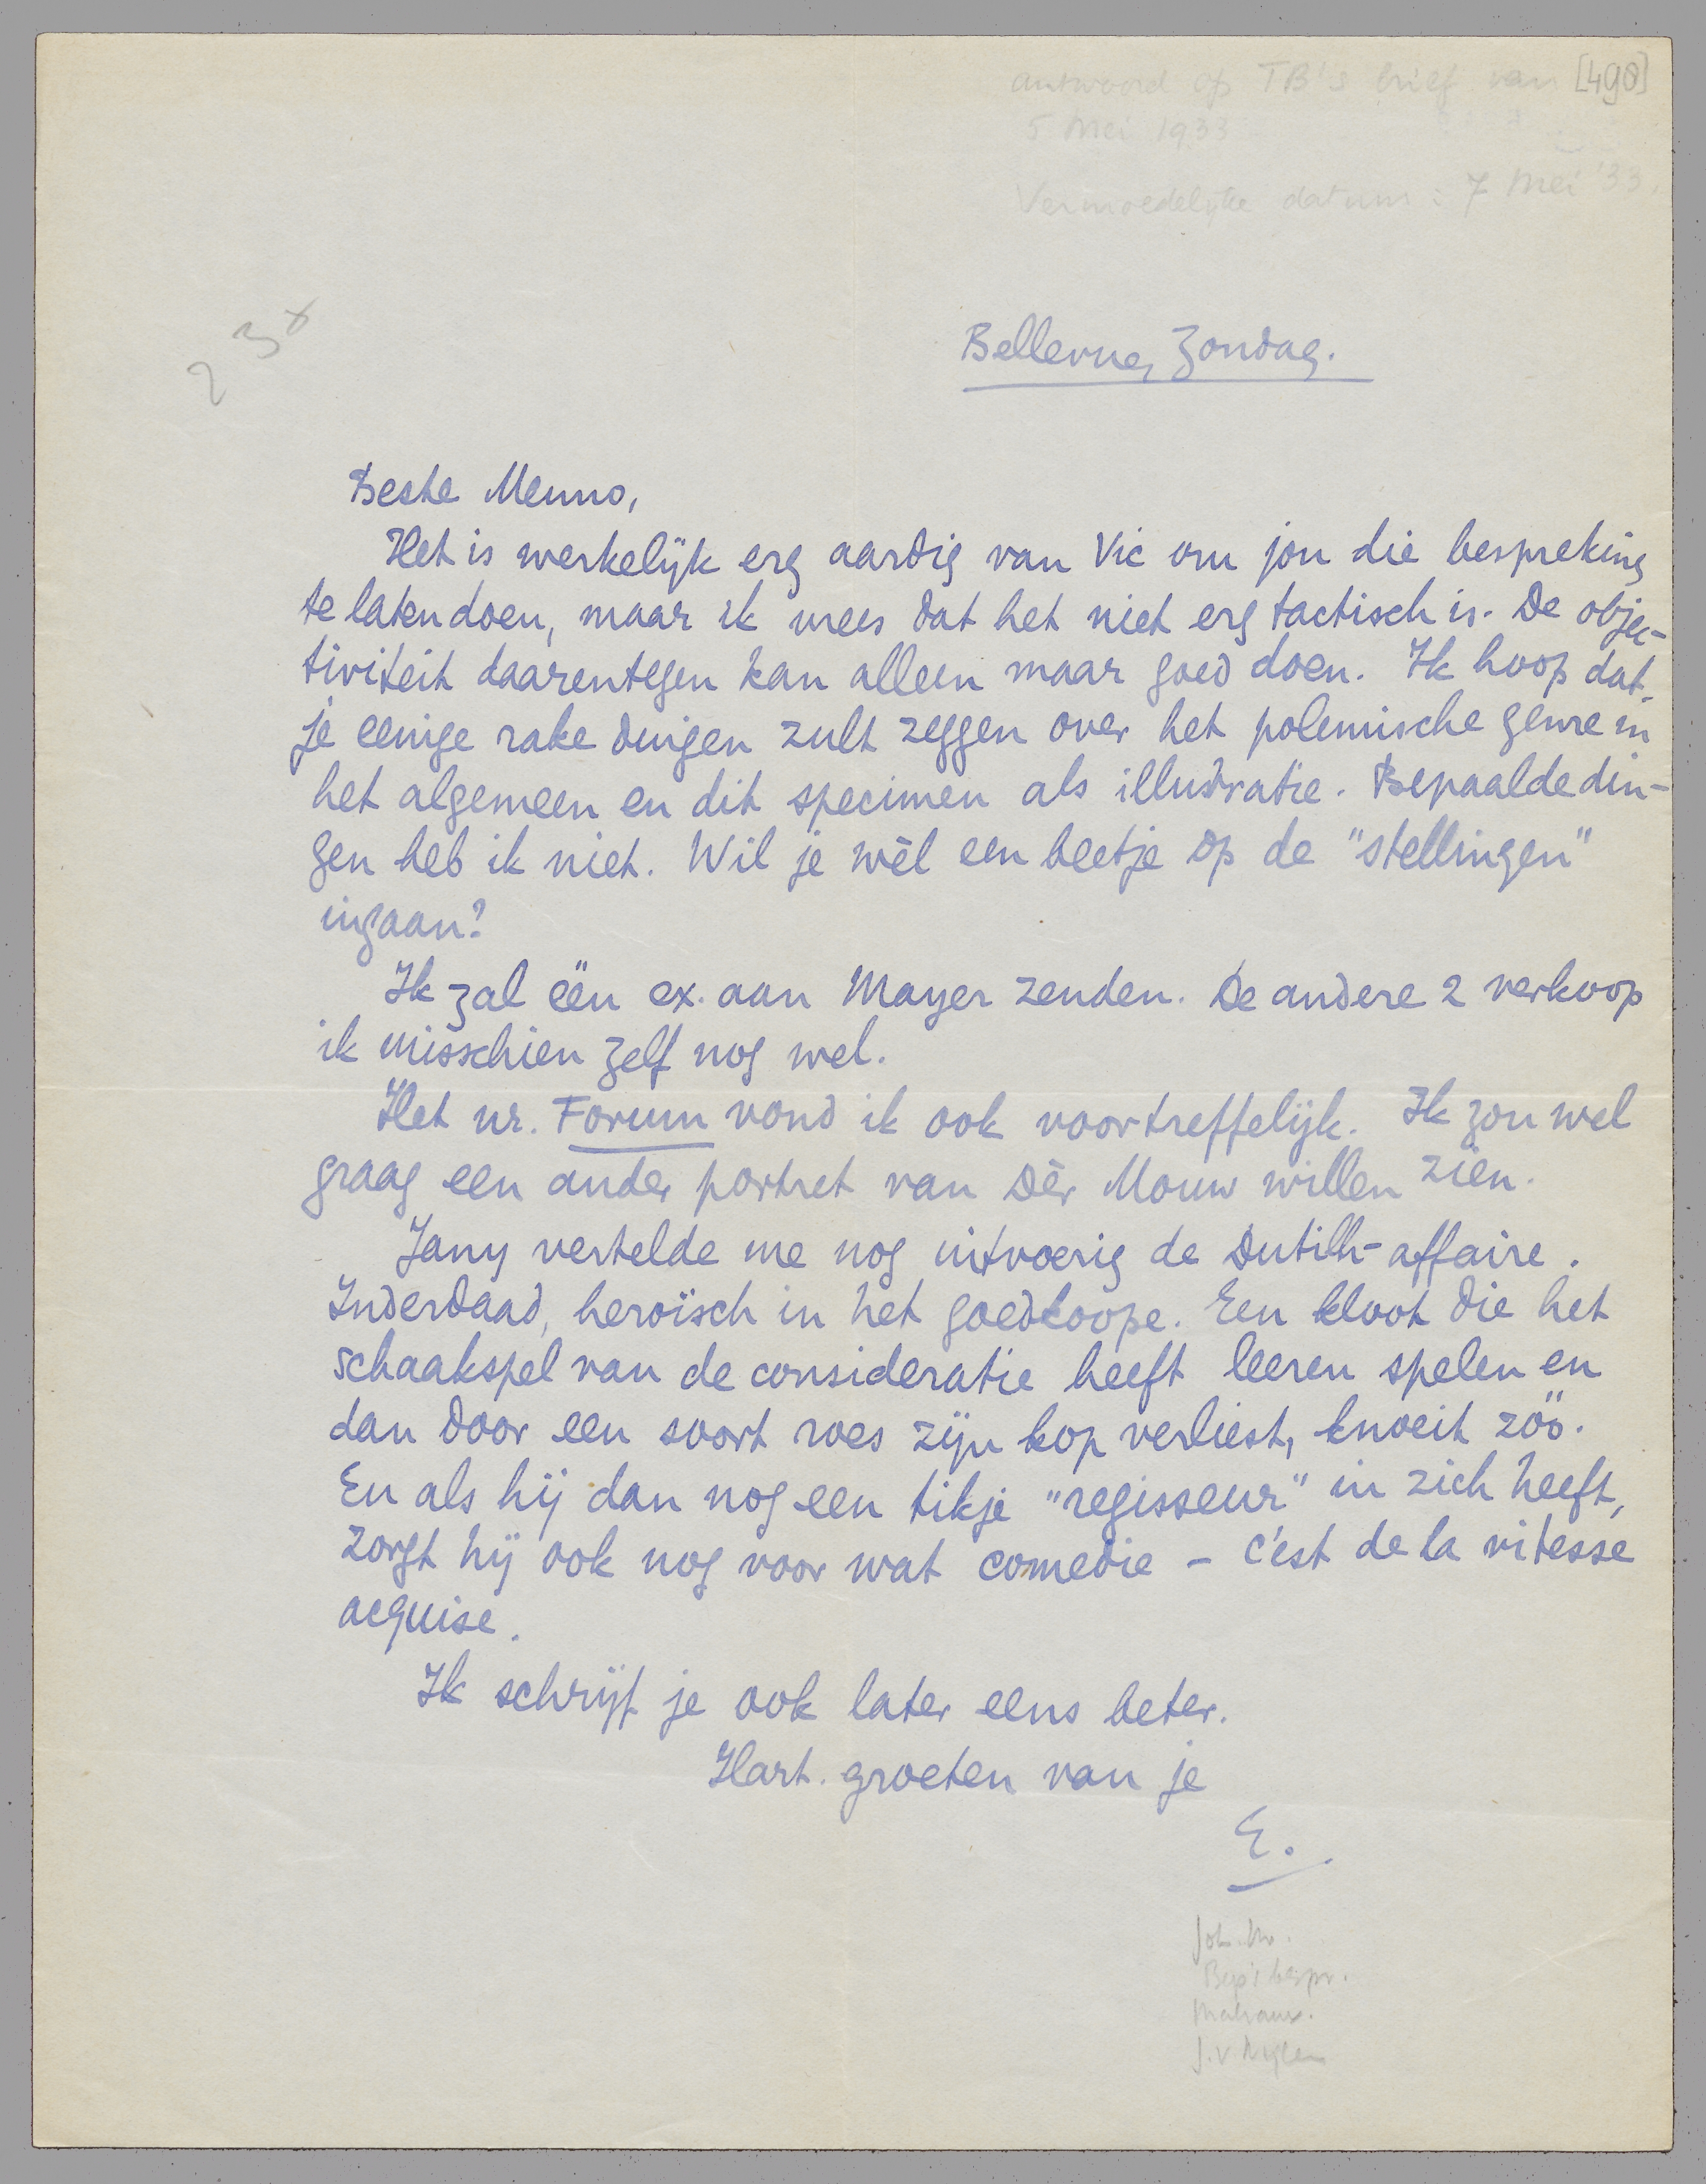 antwoord op TB's brief van [498]
5 Mei 1933
Vermoedelijke datum: 7 Mei '33.
2 3 x
Bellevue, Zondag.
Beste Menno,
Het is werkelijk erg aardig van Vic om jou die bespreking
te laten doen, maar ik vrees dat het niet erg tactisch is. De objec-
tiviteit daarentegen kan alleen maar goed doen. Ik hoop dat
je eenige rake dingen zult zeggen over het polemische genre in
het algemeen en dit specimen als illustratie. Bepaalde din-
gen heb ik niet. Wil je wèl een beetje op de "stellingen"
ingaan?
Ik zal één ex. aan Mayer zenden. De andere 2 verkoop
ik misschien zelf nog wel.
Het nr. Forum vond ik ook voortreffelijk. Ik zou wel
graag een ander portret van Dèr Mouw willen zien.
Jany vertelde me nog uitvoerig de Dutilh-affaire.
Inderdaad, heroïsch in het goedkoope. Een kloot die het
schaakspel van de consideratie heeft leeren spelen en
dan door een soort roes zijn kop verliest, knoeit zóó.
En als hij dan nog een tikje "regisseur" in zich heeft,
zorgt hij ook nog voor wat comedie - c'est de la vitesse
acquise.
Ik schrijf je ook later eens beter.
Hart. groeten van je
E.
Malraux.
J. v